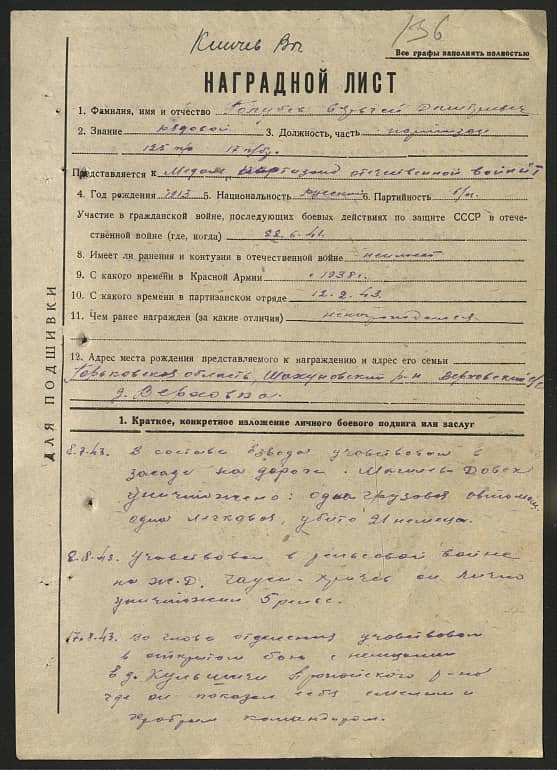 Кличев Вп.
136
Все графы заполнять полностью
НАГРАДНОЙ ЛИСТ
1. Фамилия, имя и отчество Голубев Дмитриевич
2. Звание рядовой 3. Должность, часть партизан
125 п/о
Представляется к Медали, партизану отечественной войны
4. Год рождения 1913 5. Национальность русский 6. Партийность б/п.
Участие в гражданской войне, последующих боевых действиях по защите СССР в отече-
ственной войне (где, когда) 22.6.41.
8. Имеет ли ранения и контузии в отечественной войне неимеет
9. С какого времени в Красной Армии с 1938 г.
10. С какого времени в партизанском отряде 12.2.43.
11. Чем ранее награжден (за какие отличия)
12. Адрес места рождения представляемого к награждению и адрес его семьи
Горьковская область, Шахуновский р-н Верховский с/с
д. Верховка.
ДЛЯ ПОДШИВКИ
1. Краткое, конкретное изложение личного боевого подвига или заслуг
8.7.43. В составе взвода учавствовал в
засаде на дороге. Могилев-Довск
уничтожено: одна грузовая автомаш.
одна легковая, убито 21 немеца.
2.8.43. Учавствовал в рельсовой войне
на Ж.Д. Чаусы-Кричев он лично
уничтожил 5 рельс.
17.8.43. Во главе отделения учавствовал
в открытом бою с немцами
в д. Кульшичи Пропойского р-на
где он показал себя смелым и
храбрым командиром.